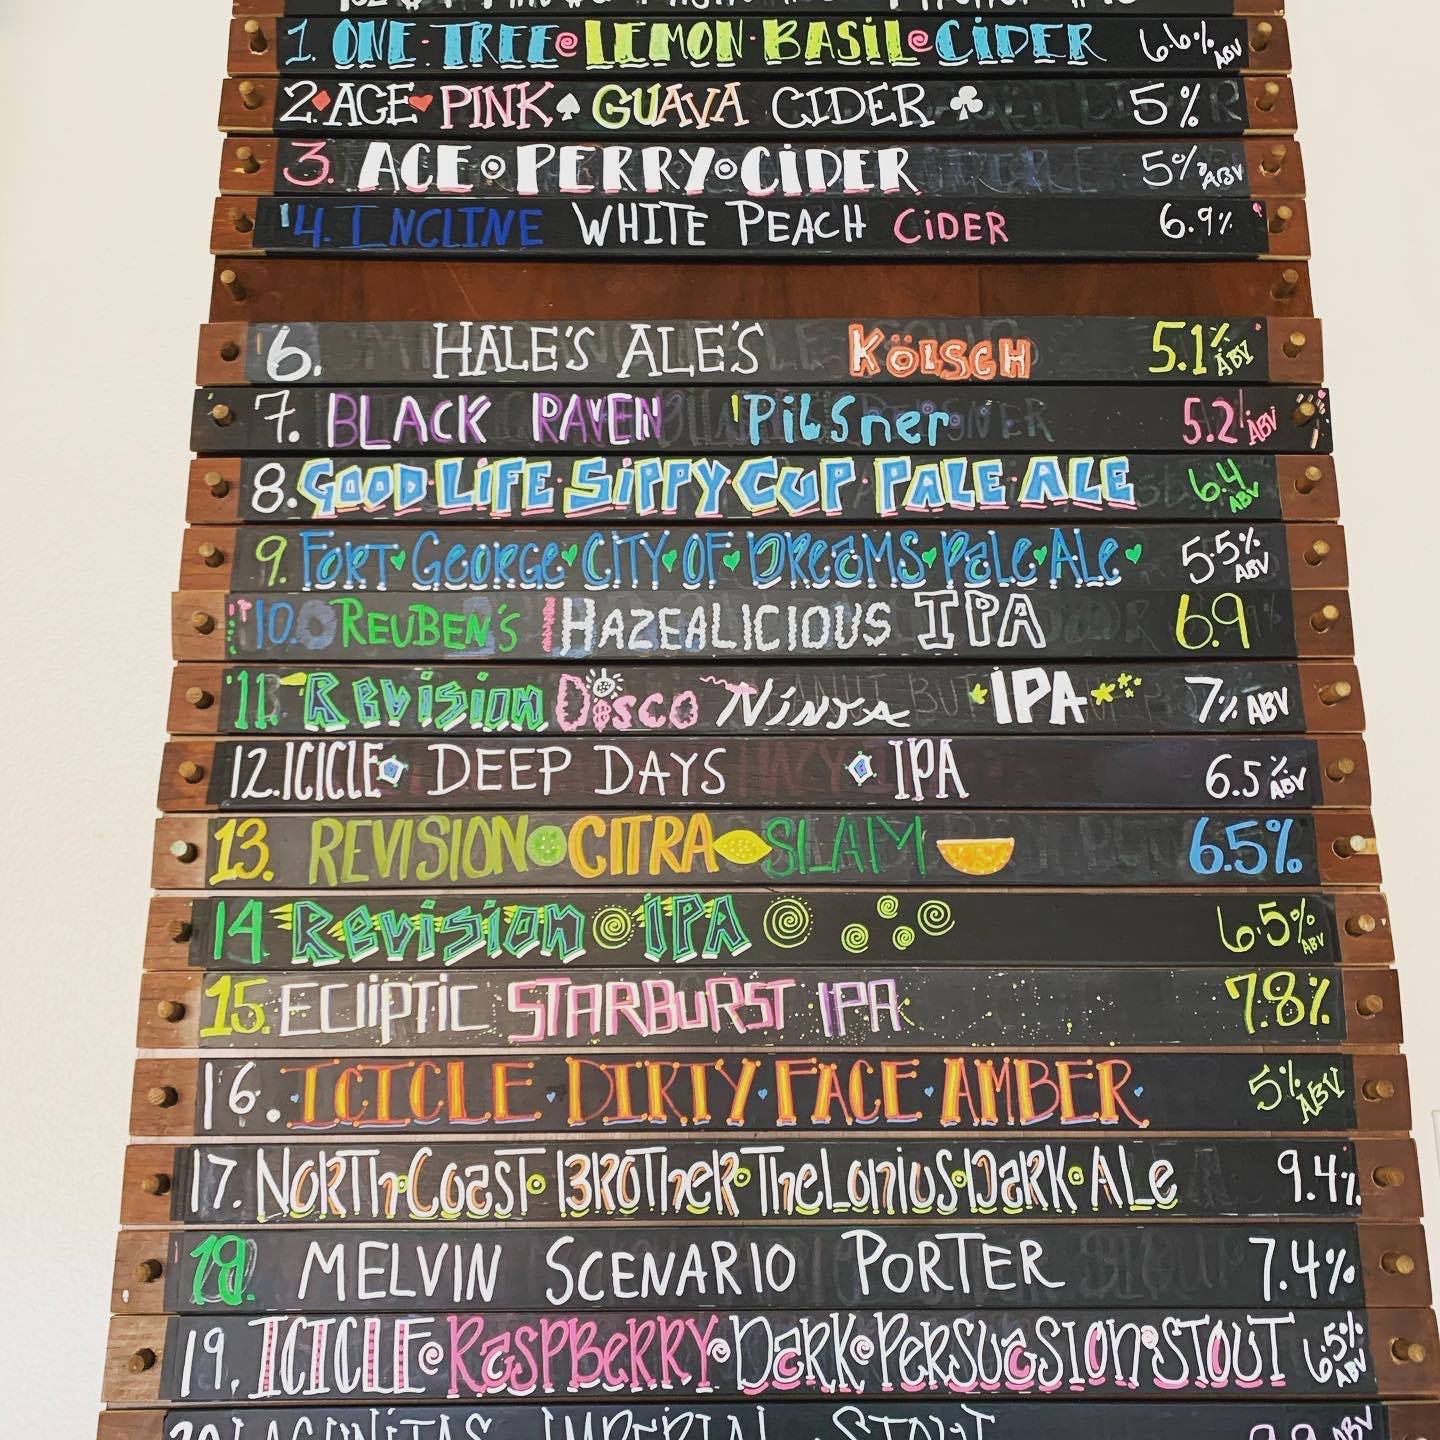 1. ONE TREE LEMON BASIL CIDER 6.6% ABV
2. ACE PINK GUAVA CIDER 5%
3. ACE PERRY CIDER 5% ABV
4. INCLINE WHITE PEACH CIDER 6.9%
6. HALE'S ALE'S KÖLSCH 5.1% ABV
7. BLACK RAVEN PILSner 5.2% ABV
8. GOOD LIFE SIPPY CUP PALE ALE 6.4 ABV
9. FORT George CITY OF DREAMS Pale Ale 5.5% ABV
10. REUBEN'S HAZEALICIOUS IPA 6.9
11. Revision Disco Ninja IPA 7% ABV
12. ICICLE DEEP DAYS IPA 6.5% ABV
13. REVISION CITRA SLAM 6.5%
14 Revision IPA 6.5% ABV
15. Ecliptic STARBURST IPA 7.8%
16. ICICLE DIRTY FACE AMBER 5% ABV
17. NORTH COAST BROTHER THELONIUS DARK ALE 9.4%
18. MELVIN SCENARIO PORTER 7.4%
19. ICICLE RASPBERRY DARK PERSUASION STOUT 6.5% ABV
20. LAGUNITAS IMPERIAL STOUT ABV